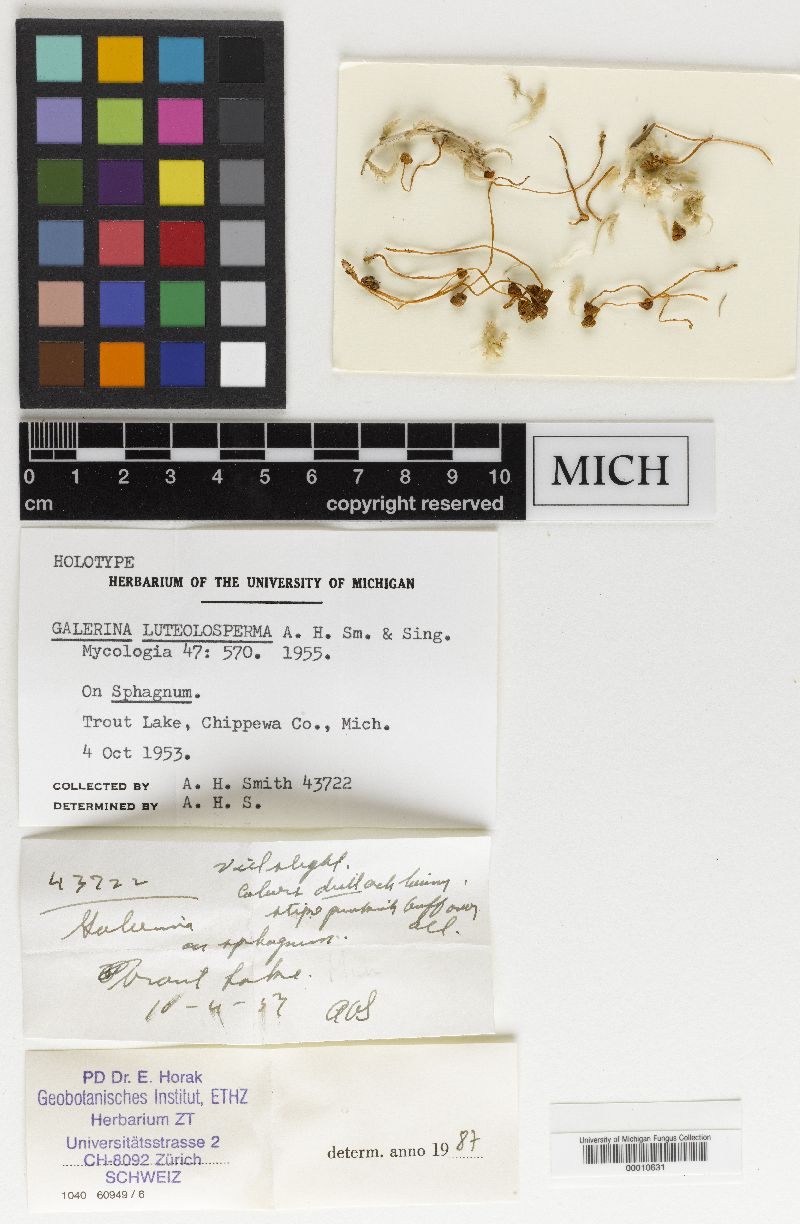 0 1 2 3 4 5 6 7 8 9 10
cm copyright reserved
MICH
HOLOTYPE
HERBARIUM OF THE UNIVERSITY OF MICHIGAN
GALERINA LUTEOLOSPERMA A. H. Sm. & Sing.
Mycologia 47: 570. 1955.
On Sphagnum.
Trout Lake, Chippewa Co., Mich.
4 Oct 1953.
COLLECTED BY A. H. Smith 43722
DETERMINED BY A. H. S.
43722
veil slight.
colors dull
stipe pinkish buff over
all.
Galerina
on sphagnum.
Trout Lake.
PD Dr. E. Horak
Geobotanisches Institut, ETHZ
Herbarium ZT
Universitätsstrasse 2
CH-8092 Zürich
SCHWEIZ
1040 60949 / 6
determ. anno 19 87
University of Michigan Fungus Collection
00010631